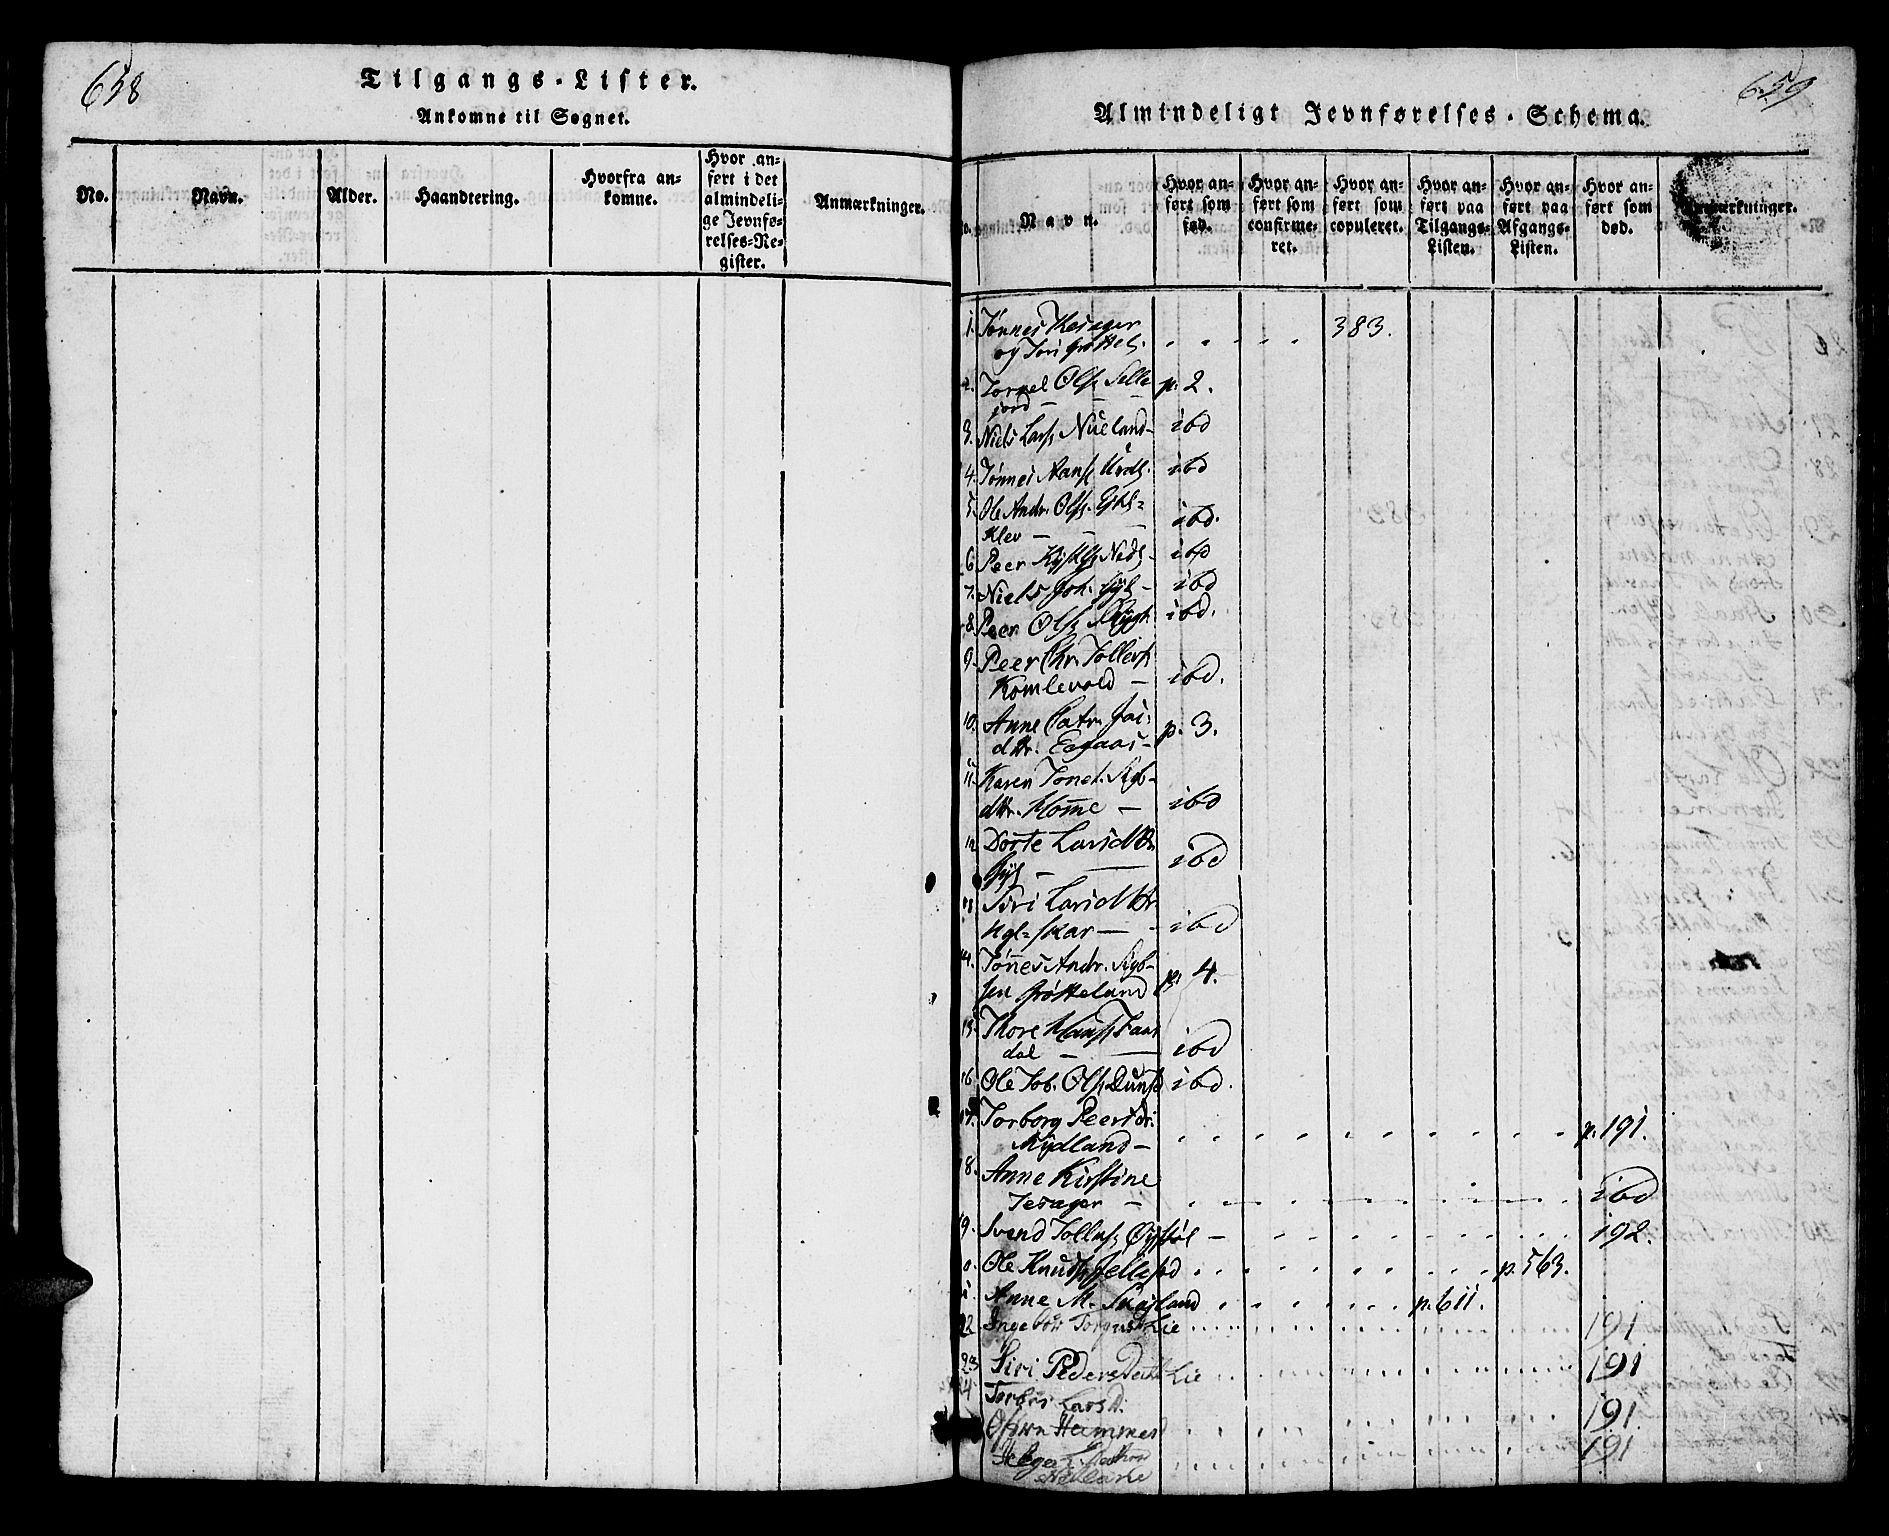 658
Tilgangs-Lister.
Ankomne til Sognet.
No.
Navn.
Alder.
Haandtering.
Hvorfra an-
komne.
Hvor an-
ført i det
almindeli-
ge Jevnfø-
relses-Re-
gister.
Anmærkninger.
659
Almindeligt Jevnførelses-Schema.
Navn.
Hvor an-
ført som
fød.
Hvor an-
ført som
confirme-
ret.
Hvor an-
ført som
copuleret.
Hvor an-
ført paa
Tilgangs-
Listen.
Hvor an-
ført paa
Afgangs-
Listen.
Hvor an-
ført som
død.
Anmærkninger.
1. Tønnes Tesager
og Siri 383.
2. Tornel Ols. Selle
jord p. 2.
3. Niels Lars. Nueland ibd
4. Tønnes Hans. ibd
5. Ole Andr. Ols. Egels=
klev ibd.
6 Peer ibd
7. Niels Joh. ibd
8. Peer Ols. ibd.
9. Peer Chr. Tollevs.
Komlevold ibd.
10. Anne Catr.
dttr. Eegaas p. 3.
11. Karen Tonet. Aqb-
dttr. Home ibd
12 Dorte Larsdttr
ibd
Siri Larsdttr.
Hgl=skar ibd
14. Tønes Andr. Aqb-
sen Grötteland p. 4.
15. Thore Hans. Faar
dal ibd
16 Ole Tob. Ols. ibd.
17. Torborg Peersdr.
Mydland p. 191.
18. Anne Kirstine
Tesager ibd
19. Svend Tollefs. Øysøl 192.
0. Ole Knuds. p. 563.
Anne M. Skasland p. 611.
22 Lie 191
23 Siri Peders Datt Lie 191
24 Lars D.
Hammer 191.
191